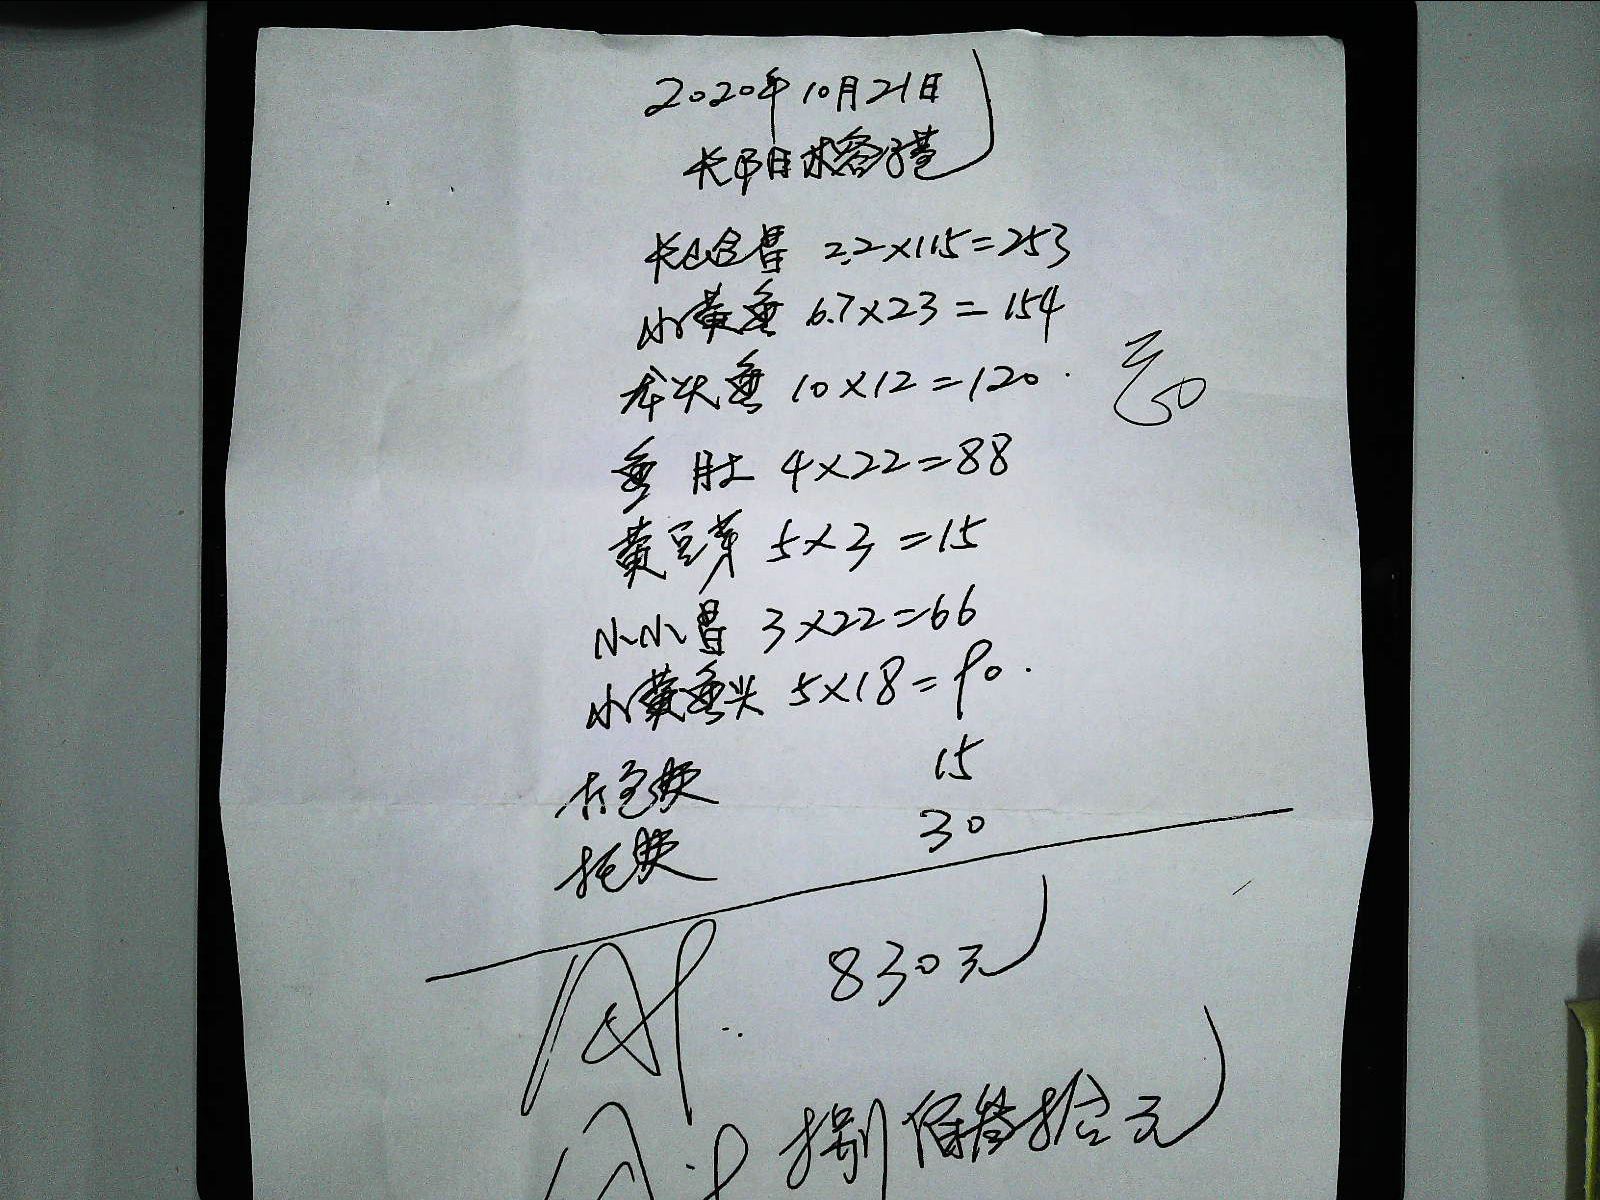 2020年10月21日
长阳日
长山鲳 2.2×115=253
小黄鱼 6.7×23=154
龙头鱼 10×12=120
鱼肚 4×22=88
黄豆芽 5×3=15
小小鲳 3×22=66
小黄鱼头 5×18=90
打包费 15
托费 30
830元
捌佰叁拾元